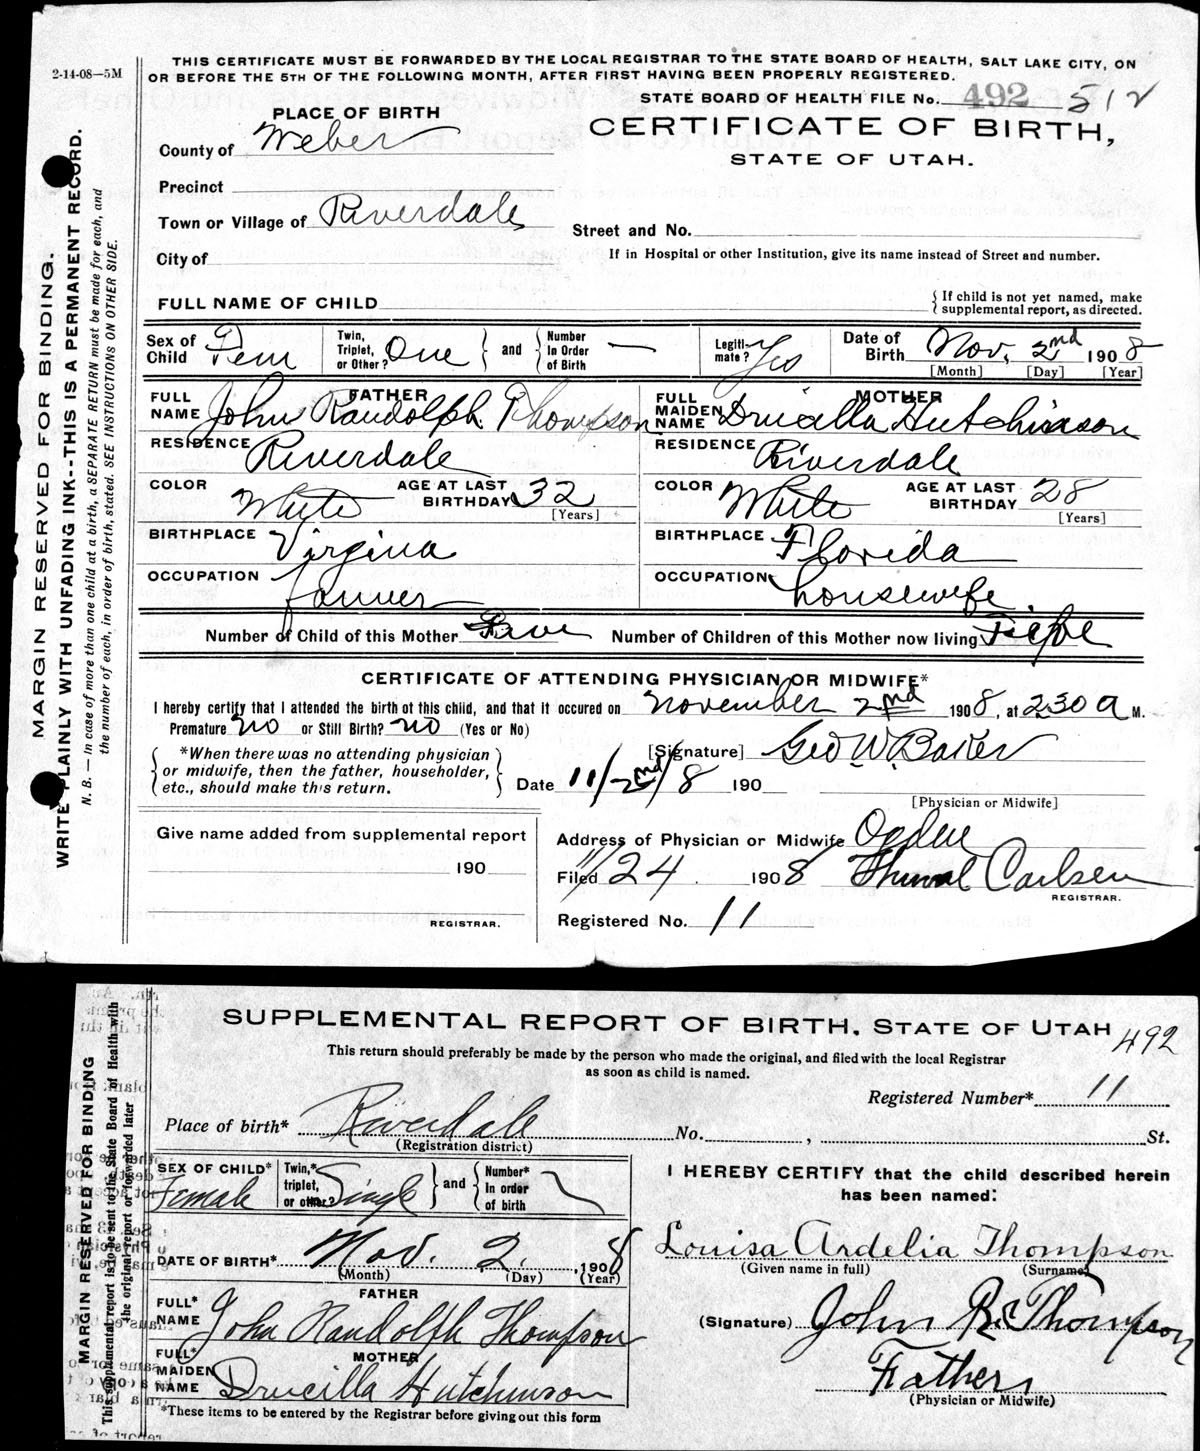 2-14-08—5M
THIS CERTIFICATE MUST BE FORWARDED BY THE LOCAL REGISTRAR TO THE STATE BOARD OF HEALTH, SALT LAKE CITY, ON
OR BEFORE THE 5TH OF THE FOLLOWING MONTH, AFTER FIRST HAVING BEEN PROPERLY REGISTERED.
STATE BOARD OF HEALTH FILE No. 492 512
PLACE OF BIRTH
CERTIFICATE OF BIRTH,
STATE OF UTAH.
County of Weber
Precinct
Town or Village of Riverdale
Street and No.
City of
If in Hospital or other Institution, give its name instead of Street and number.
FULL NAME OF CHILD
{ If child is not yet named, make
supplemental report, as directed.
Sex of Child Fem
Twin, Triplet, or Other? One } and { Number In Order of Birth —
Legitimate? Yes
Date of Birth Nov. 2nd 1908
[Month] [Day] [Year]
FATHER
FULL NAME John Randolph Thompson
RESIDENCE Riverdale
COLOR White AGE AT LAST BIRTHDAY 32
[Years]
BIRTHPLACE Virgina
OCCUPATION farmer
MOTHER
FULL MAIDEN NAME Drucilla Hutchinson
RESIDENCE Riverdale
COLOR White AGE AT LAST BIRTHDAY 28
[Years]
BIRTHPLACE Florida
OCCUPATION housewife.
Number of Child of this Mother Five Number of Children of this Mother now living
CERTIFICATE OF ATTENDING PHYSICIAN OR MIDWIFE*
I hereby certify that I attended the birth of this child, and that it occured on November 2nd 1908, at 2 30 a M.
Premature no or Still Birth? no (Yes or No)
{ *When there was no attending physician
or midwife, then the father, householder,
etc., should make this return. }
[Signature] Geo W. Baker
Date 11/2nd/8 190
[Physician or Midwife]
Give name added from supplemental report
190
REGISTRAR.
Address of Physician or Midwife Ogden
Filed 11/24 1908 Carlsen
REGISTRAR.
Registered No. 11
MARGIN RESERVED FOR BINDING.
WRITE PLAINLY WITH UNFADING INK--THIS IS A PERMANENT RECORD.
N. B. — In case of more than one child at a birth, a SEPARATE RETURN must be made for each, and
the number of each, in order of birth, stated. SEE INSTRUCTIONS ON OTHER SIDE.
SUPPLEMENTAL REPORT OF BIRTH, STATE OF UTAH 492
This return should preferably be made by the person who made the original, and filed with the local Registrar
as soon as child is named.
Registered Number* 11
Place of birth* Riverdale No. , St.
(Registration district)
SEX OF CHILD* Female
Twin,* triplet, or other? Single } and { Number* In order of birth
DATE OF BIRTH* Nov. 2. 1908
(Month) (Day) (Year)
FATHER
FULL* NAME John Randolph Thompson
MOTHER
FULL* MAIDEN NAME Drucilla Hutchinson
*These items to be entered by the Registrar before giving out this form
I HEREBY CERTIFY that the child described herein
has been named:
Louisa Ardelia Thompson
(Given name in full) (Surname)
(Signature) John R. Thompson
Father
(Physician or Midwife)
MARGIN RESERVED FOR BINDING
This supplemental report is to be sent to the State Board of Health with
the original report or forwarded later